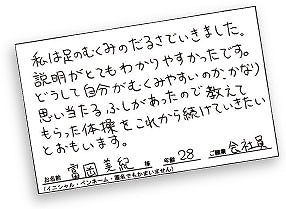 私は足のむくみのだるさでいきました。
説明がとてもわかりやすかったです。
どうして自分がむくみやすいのか、かなり
思い当たるふしがあったので教えて
もらった体操をこれから続けていきたい
とおもいます。
お名前 富岡 美紀 様 年齢 28 ご職業 会社員
(イニシャル・ペンネーム・匿名でもかまいません)